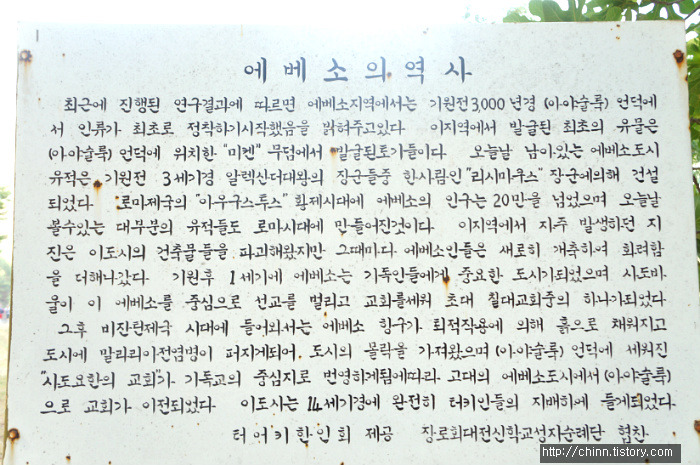 에베소의역사
최근에 진행된 연구결과에 따르면 에베소지역에서는 기원전3,000년경 (아야술룩) 언덕에
서 인류가 최초로 정착하기시작했음을 밝혀주고있다 이지역에서 발굴된 최초의 유물은
(아야술룩) 언덕에 위치한 "미켄" 무덤에서 발굴된토기들이다. 오늘날 남아있는 에베소도시
유적은 기원전 3세기경 알렉산더대왕의 장군들중 한사람인 "리시마쿠스" 장군에의해 건설
되었다. 로마제국의 "아우구스투스" 황제시대에 에베소의 인구는 20만을 넘었으며 오늘날
볼수있는 대부분의 유적들도 로마시대에 만들어진것이다. 이지역에서 자주 발생하던 지
진은 이도시의 건축물들을 파괴해왔지만 그때마다 에베소인들은 새로히 개축하여 화려함
을 더해나갔다. 기원후 1세기에 에베소는 기독인들에게 중요한 도시가되었으며 사도바
울이 이 에베소를 중심으로 선교를 벌리고 교회를세워 초대 칠대교회중의 하나가되었다
그후 비잔틴제국 시대에 들어와서는 에베소 항구가 퇴적작용에 의해 흙으로 채워지고
도시에 말라리아전염병이 퍼지게되어 도시의 몰락을 가져왔으며 (아야술룩) 언덕에 세워진
"사도요한의 교회"가 기독교의 중심지로 번영하게됨에따라 고대의 에베소도시에서 (아야술룩)
으로 교회가 이전되었다. 이도시는 14세기경에 완전히 터키인들의 지배하에 들게되었다.
터어키한인회 제공 장로회대전신학교성지순례단 협찬
http://chinn.tistory.com